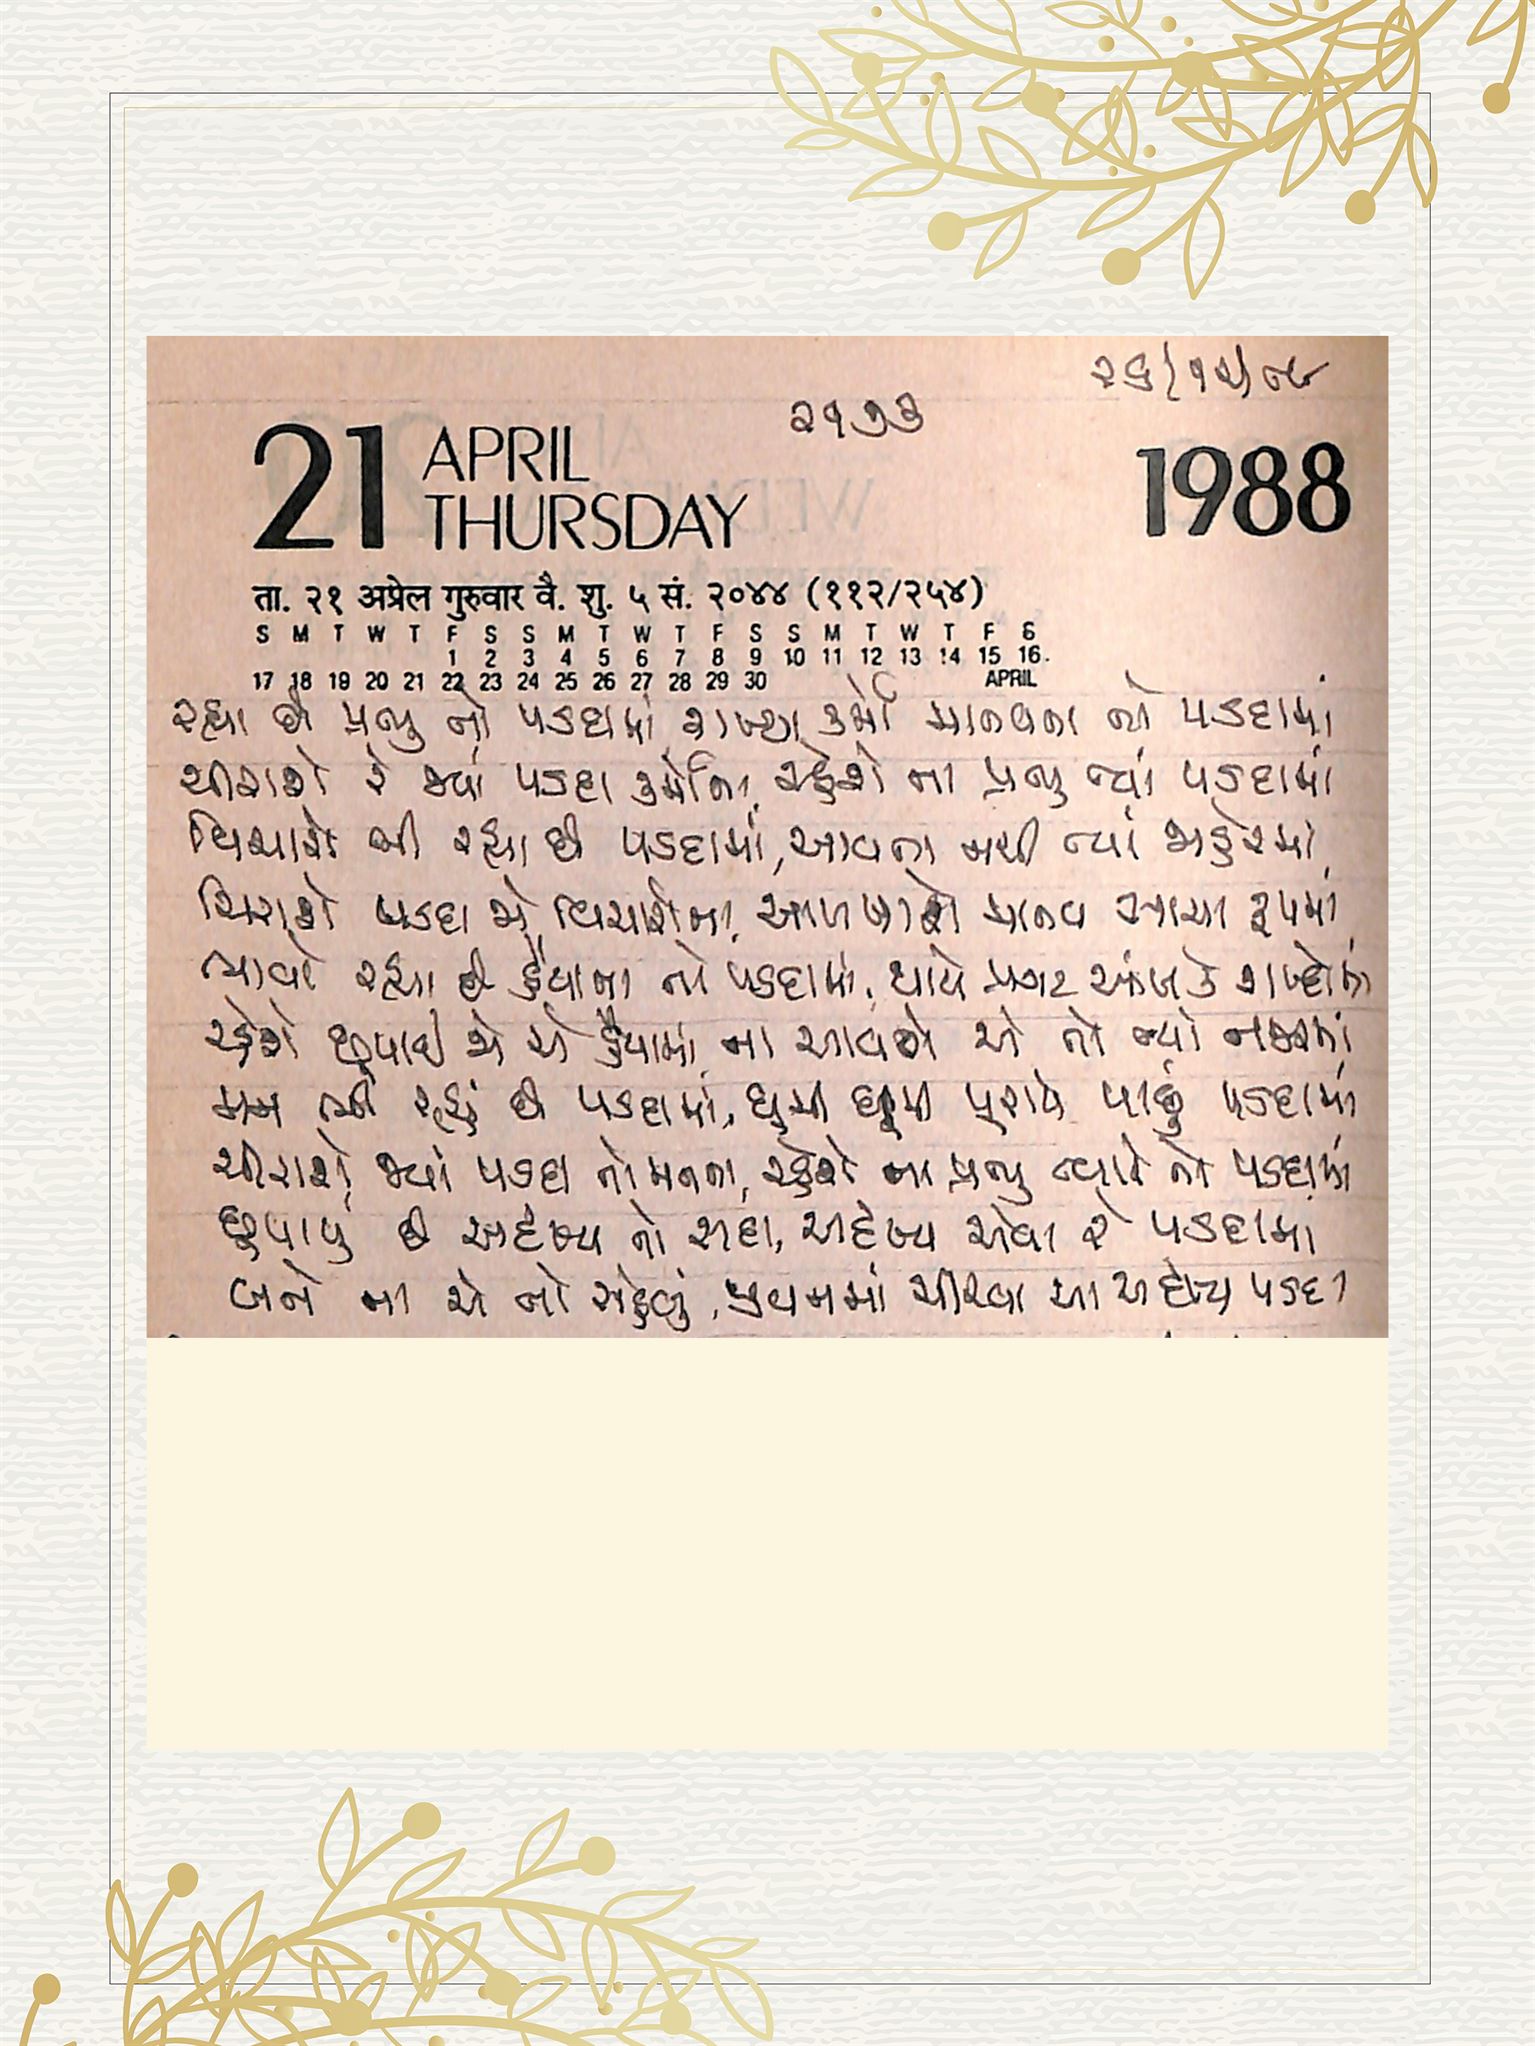 ૨૬/૧૨/૮૯
૨૧૭૩
21 APRIL THURSDAY 1988
ता. २१ अप्रेल गुरुवार वै. शु. ५ सं. २०४४ (११२/२५४)
S M T W T F S S M T W T F S S M T W T F S
1 2 3 4 5 6 7 8 9 10 11 12 13 14 15 16
17 18 19 20 21 22 23 24 25 26 27 28 29 30 APRIL
રહ્યા છે પ્રભુ તો પડદામાં રાખ્યા કર્મો માનવના તો પડદામાં
ચીરાશે રે જ્યાં પડદા કર્મોના, રહેશે ના પ્રભુ ત્યાં પડદામાં
વિચારો ભી રહ્યા છે પડદામાં, આવતા નથી ત્યાં જાહેરમાં
ચિરાશે પડદા જો વિચારોના, ઓળખાશે માનવ સાચા રૂપમાં
ભાવો રહ્યા છે હૈયાના તો પડદામાં, થાયે પ્રગટ આંખ કે શબ્દોમાં
રહેશે છુપાઈ જો એ હૈયામાં, ના આવશે એ તો ત્યાં નજરમાં
મન ભી રહ્યું છે પડદામાં, ઘુમી ઘુમી પુરાયે પાછું પડદામાં
ચીરાશે જ્યાં પડદા તો મનના, રહેશે ના પ્રભુ ત્યારે તો પડદામાં
છુપાયું છે અદૃશ્ય તો સદા, અદૃશ્ય એવા રે પડદામાં
બને ના એ તો સહેલું, પ્રથમમાં ચીરવા આ અદૃશ્ય પડદા